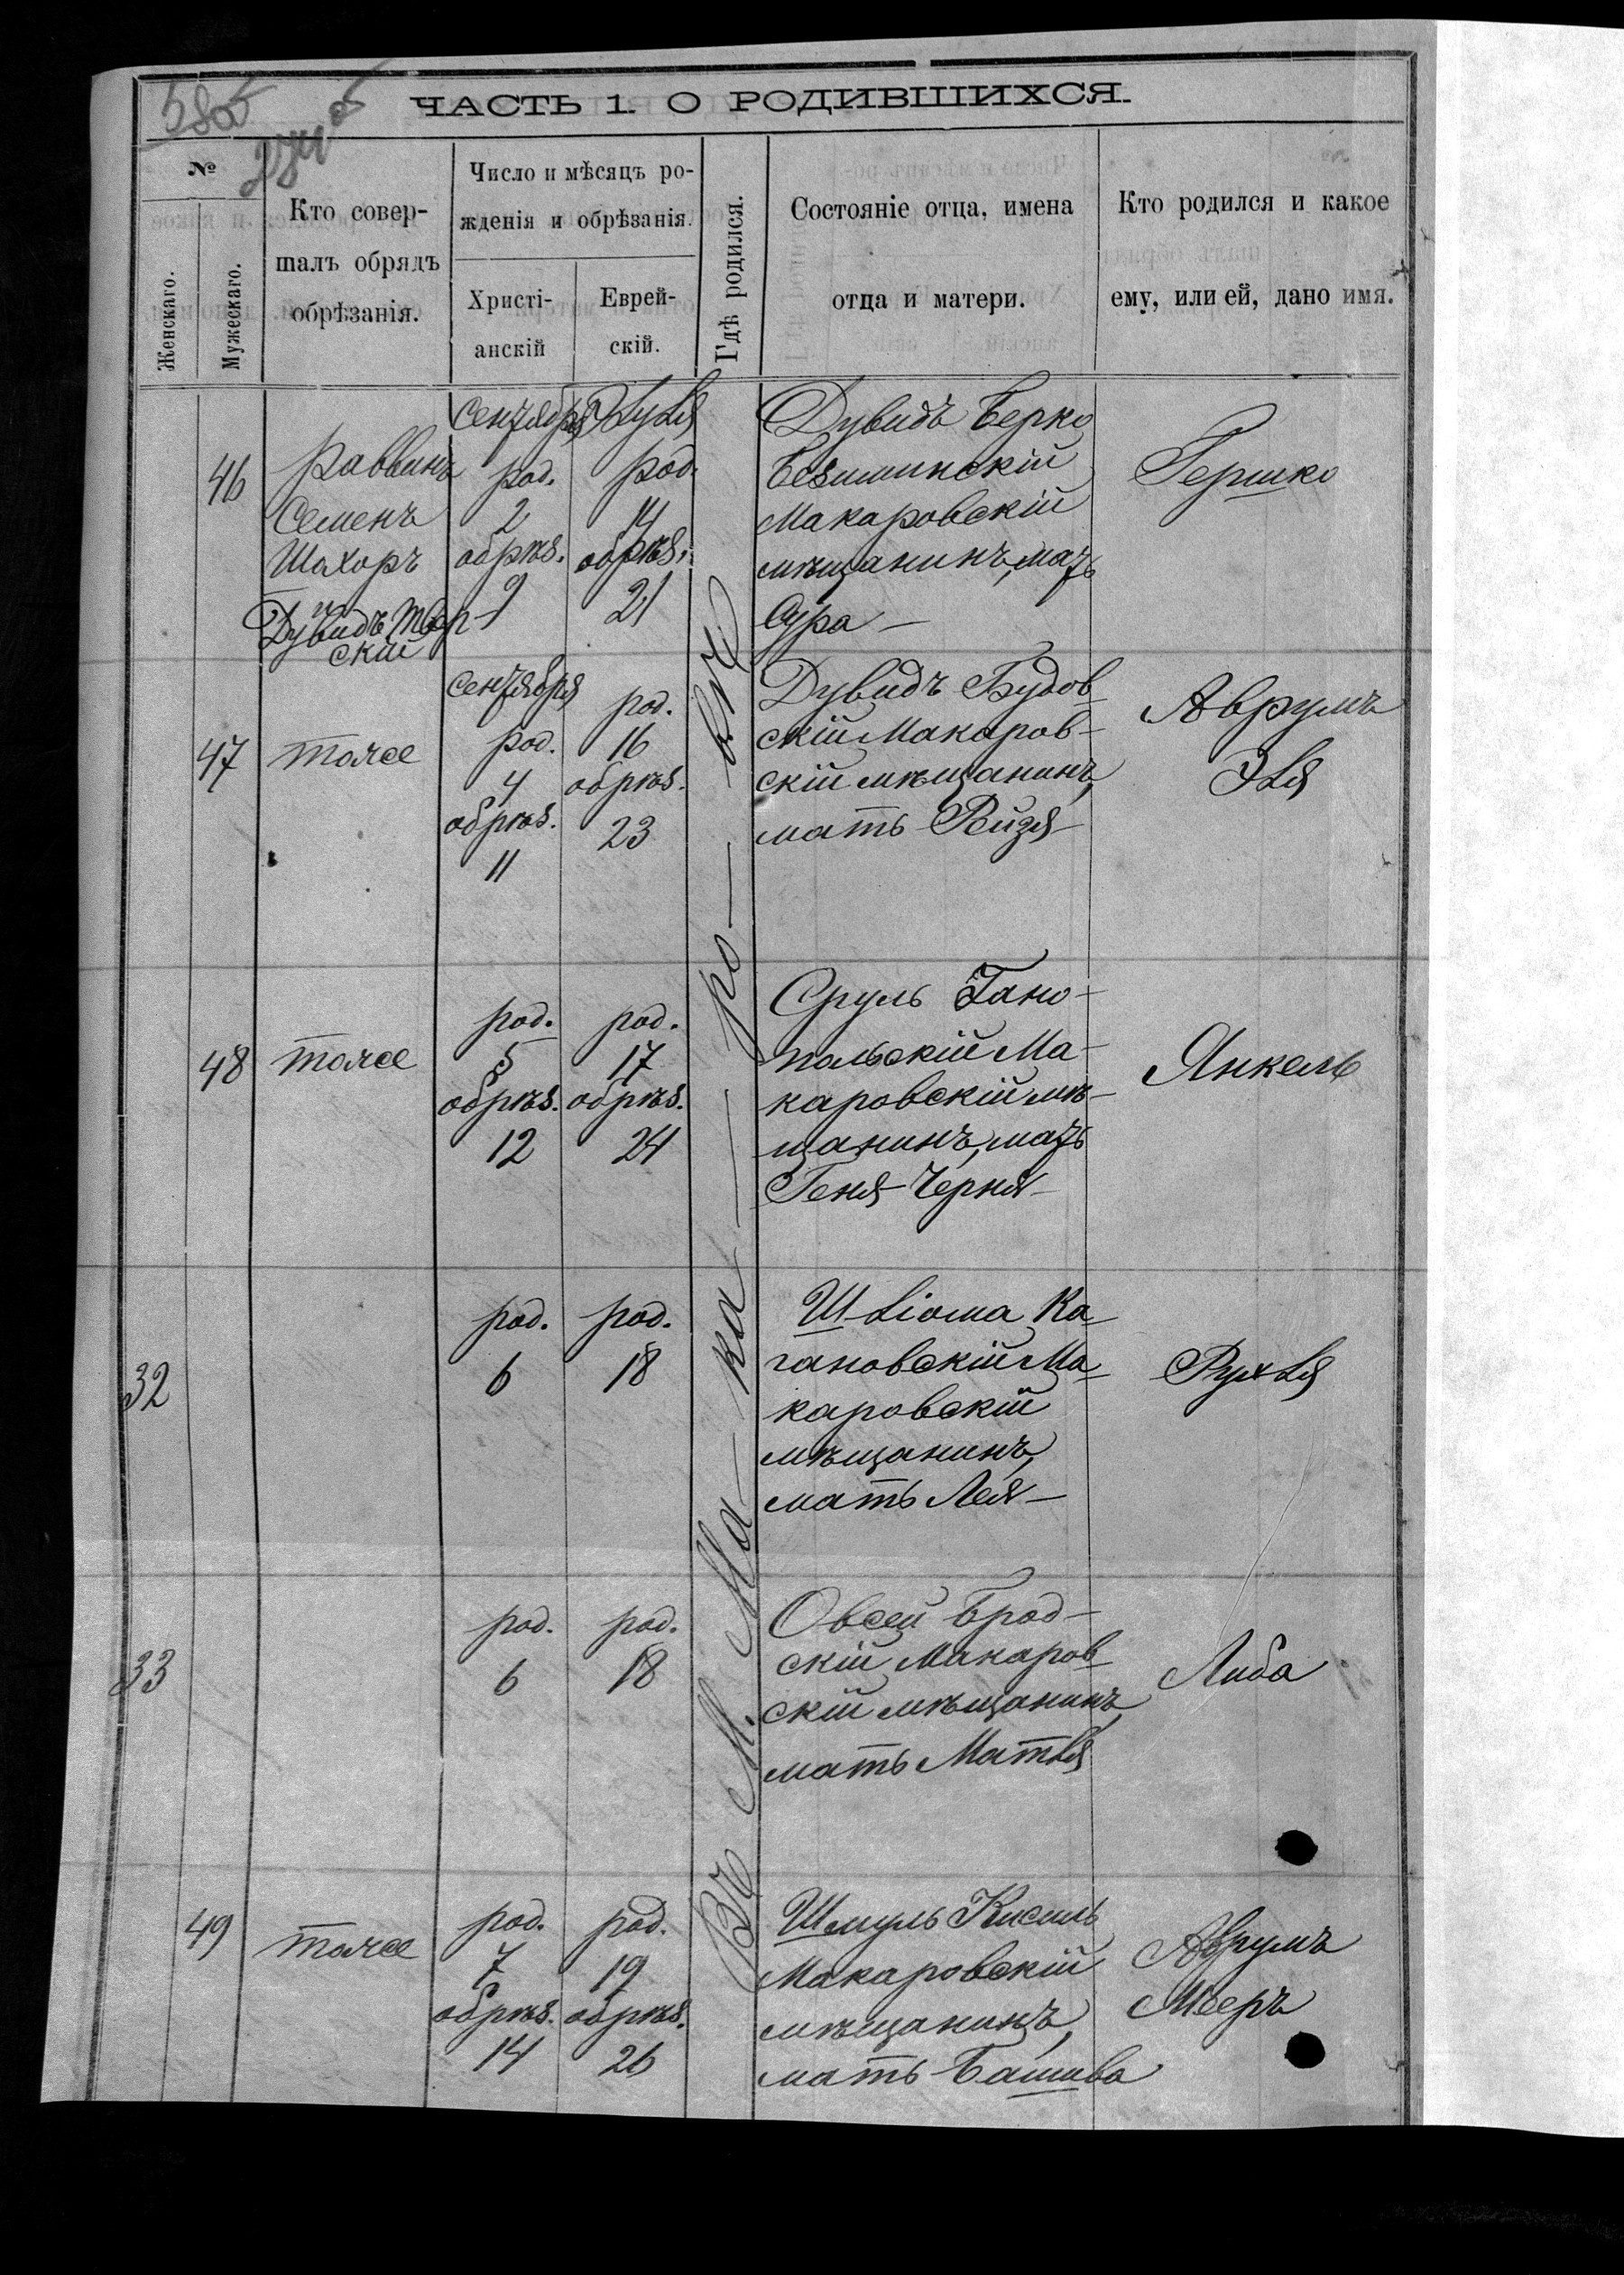 ЧАСТЬ 1. О РОДИВШИХСЯ.
№
Женскаго.
Мужескаго.
Кто совер-
шалъ обрядъ
обрѣзанія.
Число и мѣсяцъ ро-
жденія и обрѣзанія.
Христі-
анскій
Еврей-
скій.
Гдѣ родился.
Состояніе отца, имена
отца и матери.
Кто родился и какое
ему, или ей, дано имя.
Въ М. Ма-ка-ро-вѣ
46
Раввинъ
Семенъ
Шахоръ
и
Дувидъ Твер-
скій
Сентября
род.
2
обрѣз.
9
Элуля
род.
14
обрѣз.
21
Дувидъ Берко
Макаровскій
мѣщанинъ, мать
Сура
Гершко
47
тоже
сентября
род.
4
обрѣз.
11
род.
16
обрѣз.
23
Дувидъ Будов-
скій Макаров-
скій мѣщанинъ,
мать Рейзя
Аврумъ
Эля
48
тоже
род.
5
обрѣз.
12
род.
17
обрѣз.
24
Сруль Гано-
польскій Ма-
каровскій мѣ-
щанинъ, мать
Геня-Черня
Янкель
32
род.
6
род.
18
Шліома Ка-
гановскій Ма-
каровскій
мѣщанинъ,
мать Лея
Рухля
33
род.
6
род.
18
Овсей Брод-
скій Макаров-
скій мѣщанинъ,
мать Матля
Либа
49
тоже
род.
7
обрѣз.
14
род.
19
обрѣз.
26
Шмуль Кисиль
Макаровскій
мѣщанинъ,
мать Башива
Аврумъ
Мееръ